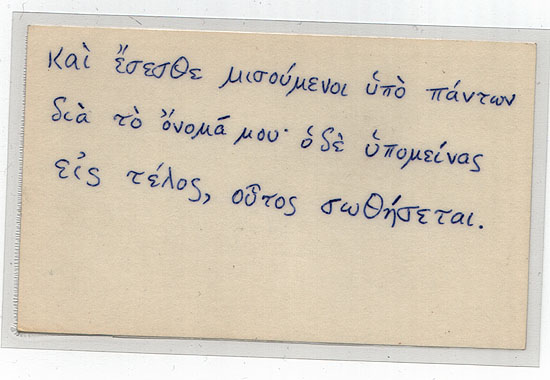 καὶ ἔσεσθε μισούμενοι ὑπὸ πάντων
διὰ τὸ ὄνομά μου· ὁ δὲ ὑπομείνας
εἰς τέλος, οὗτος σωθήσεται.